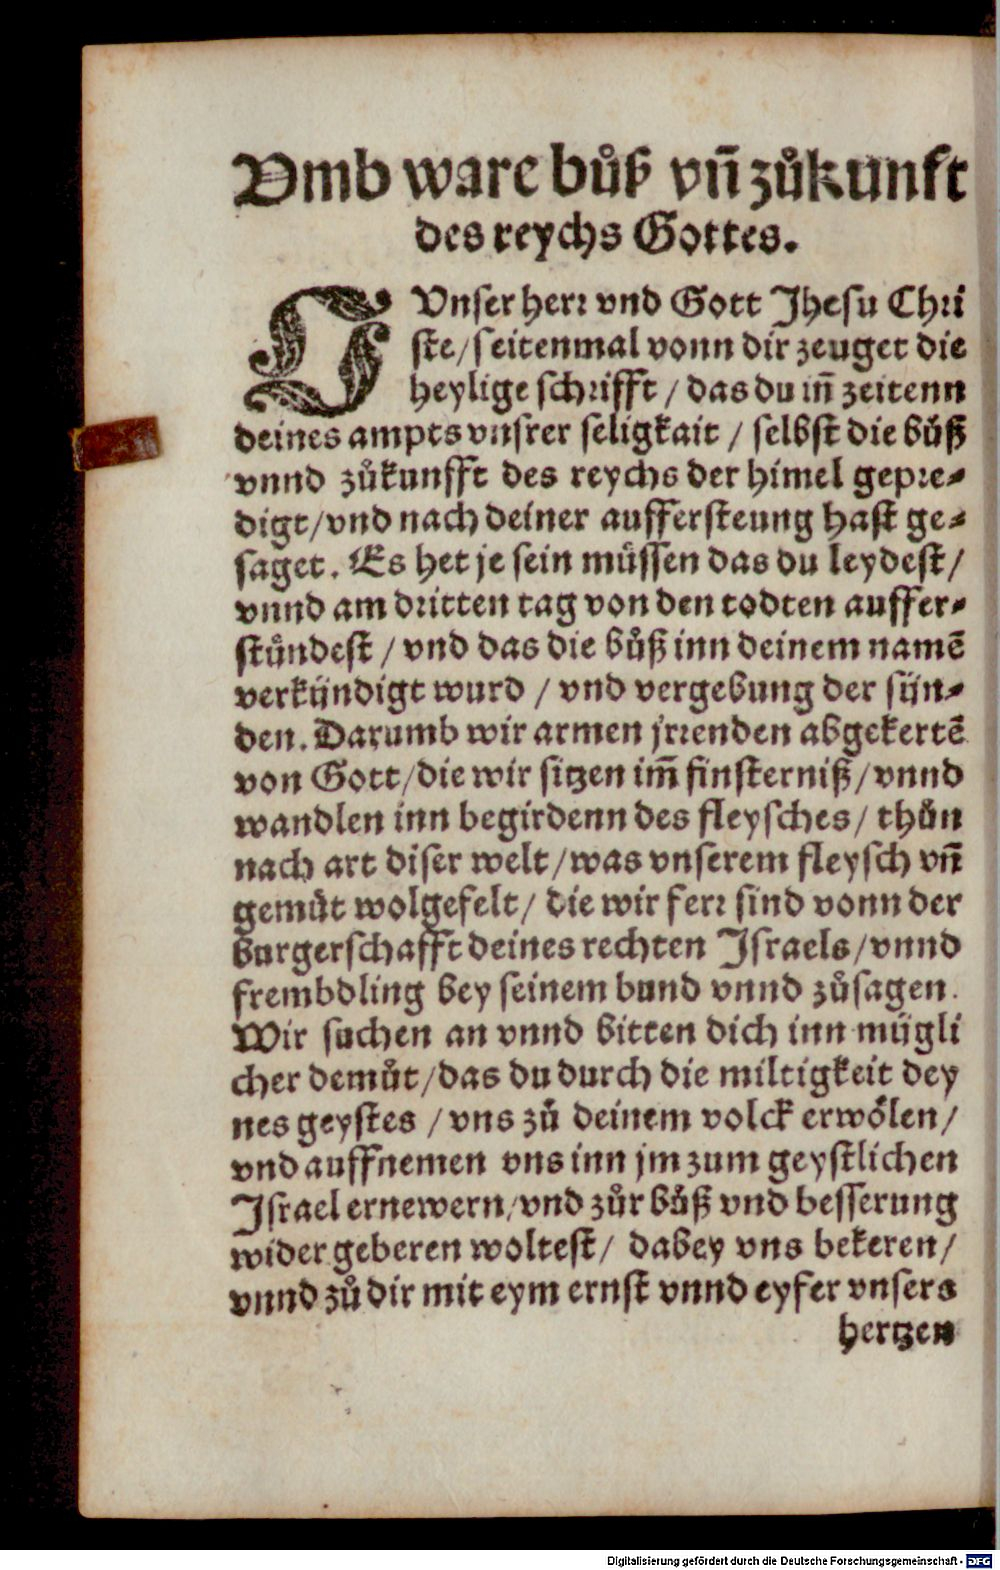 Vmb ware bůß vñ zůkunft
des reychs Gottes.
O Vnser herr vnd Gott Jhesu Chri
ste/seitenmal vonn dir zeuget die
heylige schrifft / das du iñ zeitenn
deines ampts vnsrer seligkait / selbst die bůß
vnnd zůkunfft des reychs der himel gepre-
digt/vnd nach deiner aufferersteung hast ge-
saget. Es het je sein müssen das du leydest/
vnnd am dritten tag von den todten auffer-
stündest / vnd das die bůß inn deinem namẽ
verkündigt wurd / vnd vergebung der sün-
den. Darumb wir armen jrrenden abgekertẽ
von Gott/die wir sitzen im̃ finsterniß/vnnd
wandlen inn begirdenn des fleysches/ thůn
nach art diser welt/was vnserem fleysch vñ
gemůt wolgefelt/ die wir ferr sind vonn der
burgerschafft deines rechten Israels/vnnd
frembdling bey seinem bund vnnd zůsagen.
Wir suchen an vnnd bitten dich inn mügli
cher demůt/das du durch die miltigkeit dey
nes geystes / vns zů deinem volck erwölen/
vnd auffnemen vns inn jm zum geystlichen
Israel ernewern/vnd zůr bůß vnd besserung
wider geberen woltest/ dabey vns bekeren/
vnnd zů dir mit eym ernst vnnd eyfer vnsers
hertzen
Digitalisierung gefördert durch die Deutsche Forschungsgemeinschaft - DFG